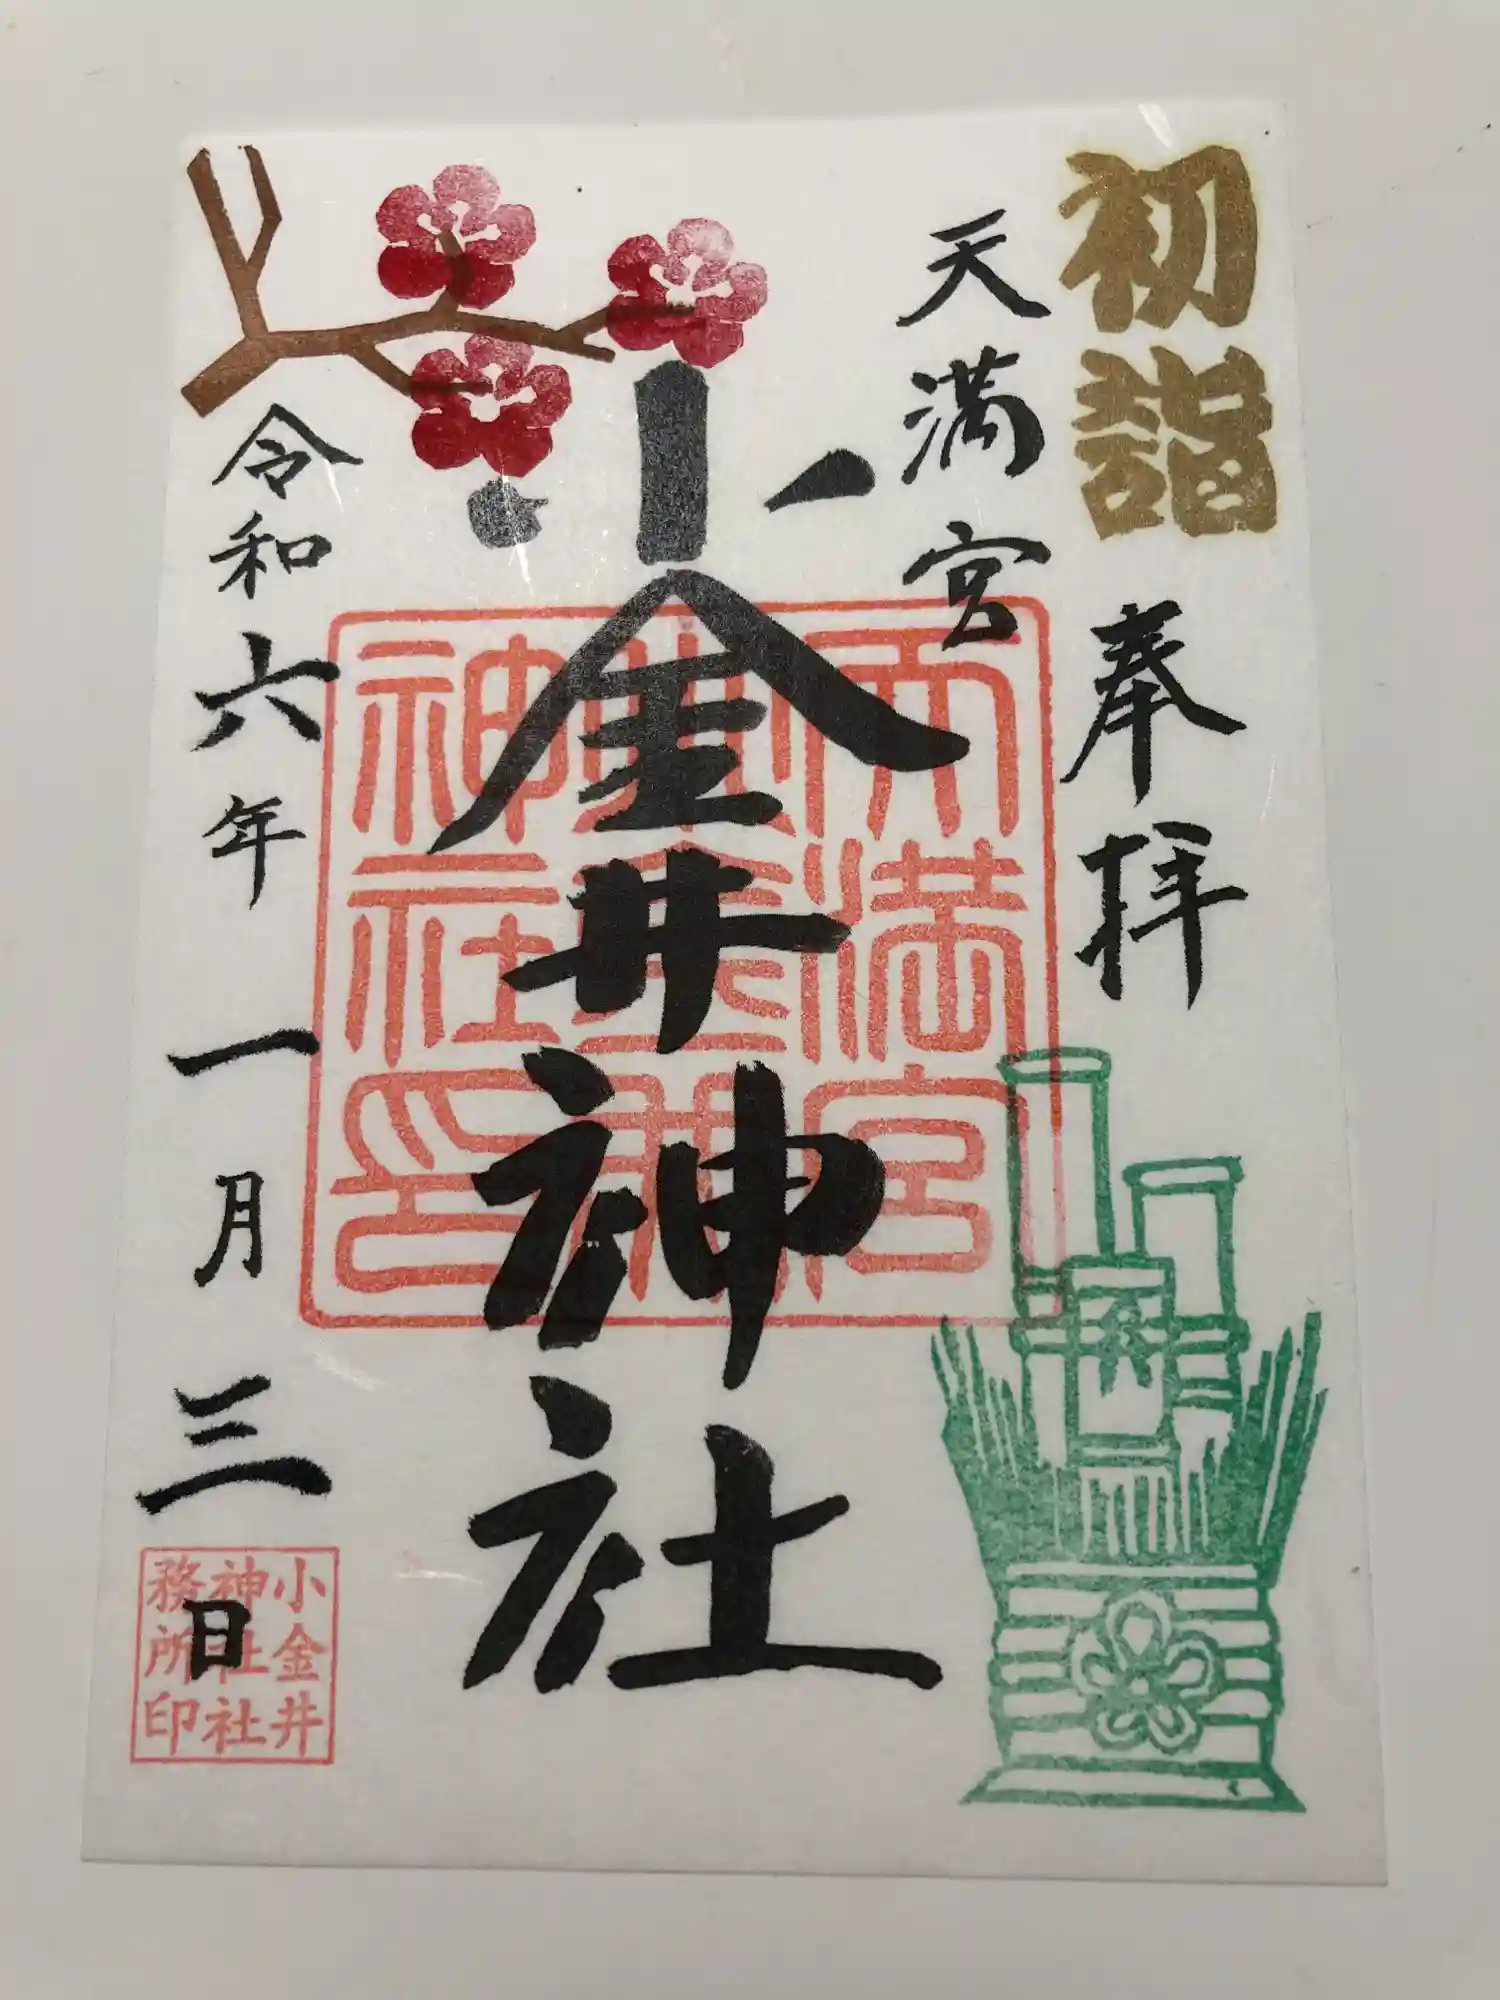 初詣
奉拝
天満宮
小金井神社
令和六年一月三日
天満宮
小金井
神社印
小金井
神社社
務所印